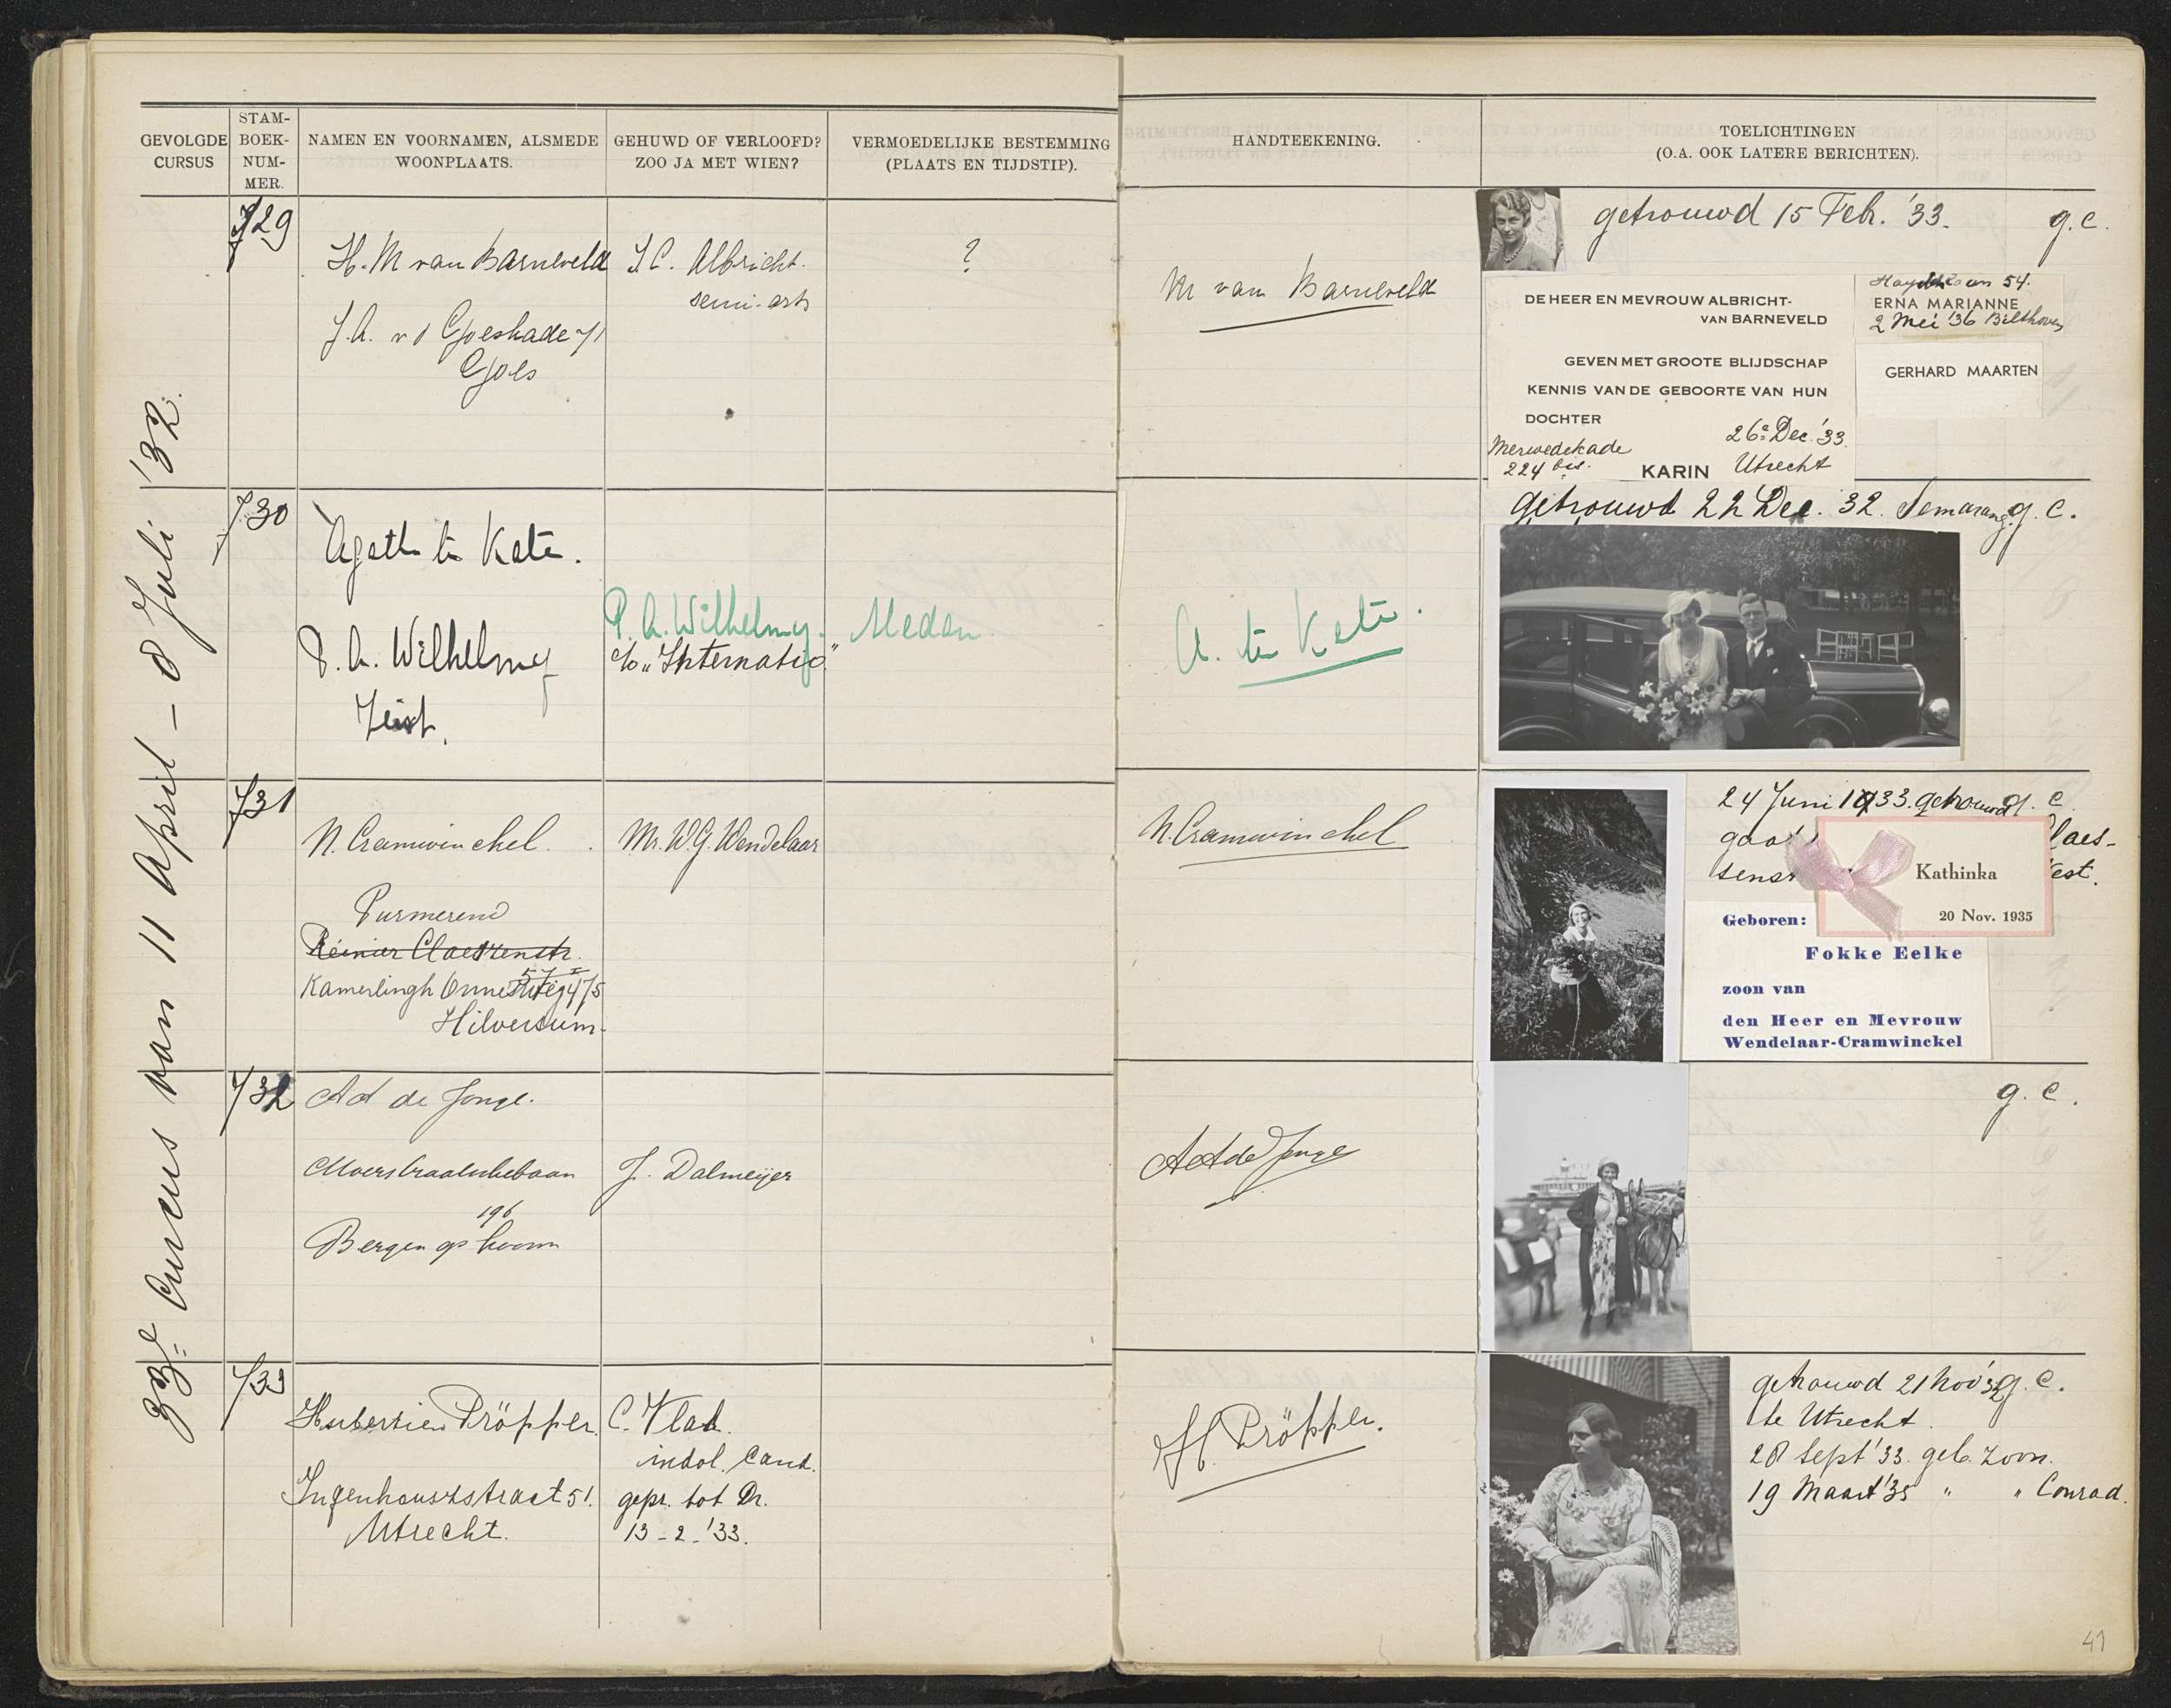 GEVOLGDE CURSUS
STAM-BOEK-NUM-MER.
NAMEN EN VOORNAMEN, ALSMEDE WOONPLAATS.
GEHUWD OF VERLOOFD? ZOO JA MET WIEN?
VERMOEDELIJKE BESTEMMING (PLAATS EN TIJDSTIP).
HANDTEEKENING.
TOELICHTINGEN
(O.A. OOK LATERE BERICHTEN).
33e Cursus van 11 April - 8 Juli '32.
729
H. M van Barneveld
J. A. v d Goeskade 71
Goes
J. C. Albricht.
semi-arts
?
M van Barneveld
getrouwd 15 Febr. '33.
g.c.
DE HEER EN MEVROUW ALBRICHT-
VAN BARNEVELD
GEVEN MET GROOTE BLIJDSCHAP
KENNIS VAN DE GEBOORTE VAN HUN
DOCHTER
26e Dec. '33.
Merwedekade
224 bis.
KARIN
Utrecht
54.
ERNA MARIANNE
2 Mei '36 Bilthoven
GERHARD MAARTEN
730
Agath te Kate.
P. A. Wilhelmy
Zeist.
P. A. Wilhelmy.
c/o "Internatio"
Medan
A. te Kate.
getrouwd 22 Dec. 32. Semarang g. c.
731
N. Cramwinckel.
Purmerend
Reinier Claeszenstr.
57 I
Kamerlingh Onnesweg 475
Hilversum.
Mr. W. G. Wendelaar
N. Cramwinckel
24 Juni 1933. getrouwd g. c.
gaat
Claes-
sens
est.
Kathinka
20 Nov. 1935
Geboren:
Fokke Eelke
zoon van
den Heer en Mevrouw
Wendelaar-Cramwinckel
732
Ad de Jonge.
Moerstraatschebaan
196
Bergen op Zoom
J. Dalmeijer
A de Jonge
g. c.
733
Hubertien Pröpper.
Ingenhouszstraat 51.
Utrecht.
C. Vlak.
indol. Cand.
gepr. tot Dr.
13-2-'33.
H. Pröpper.
getrouwd 21 Nov '32 g. c.
te Utrecht.
28 Sept '33. geb. zoon.
19 Maart '35 " " Conrad.
41